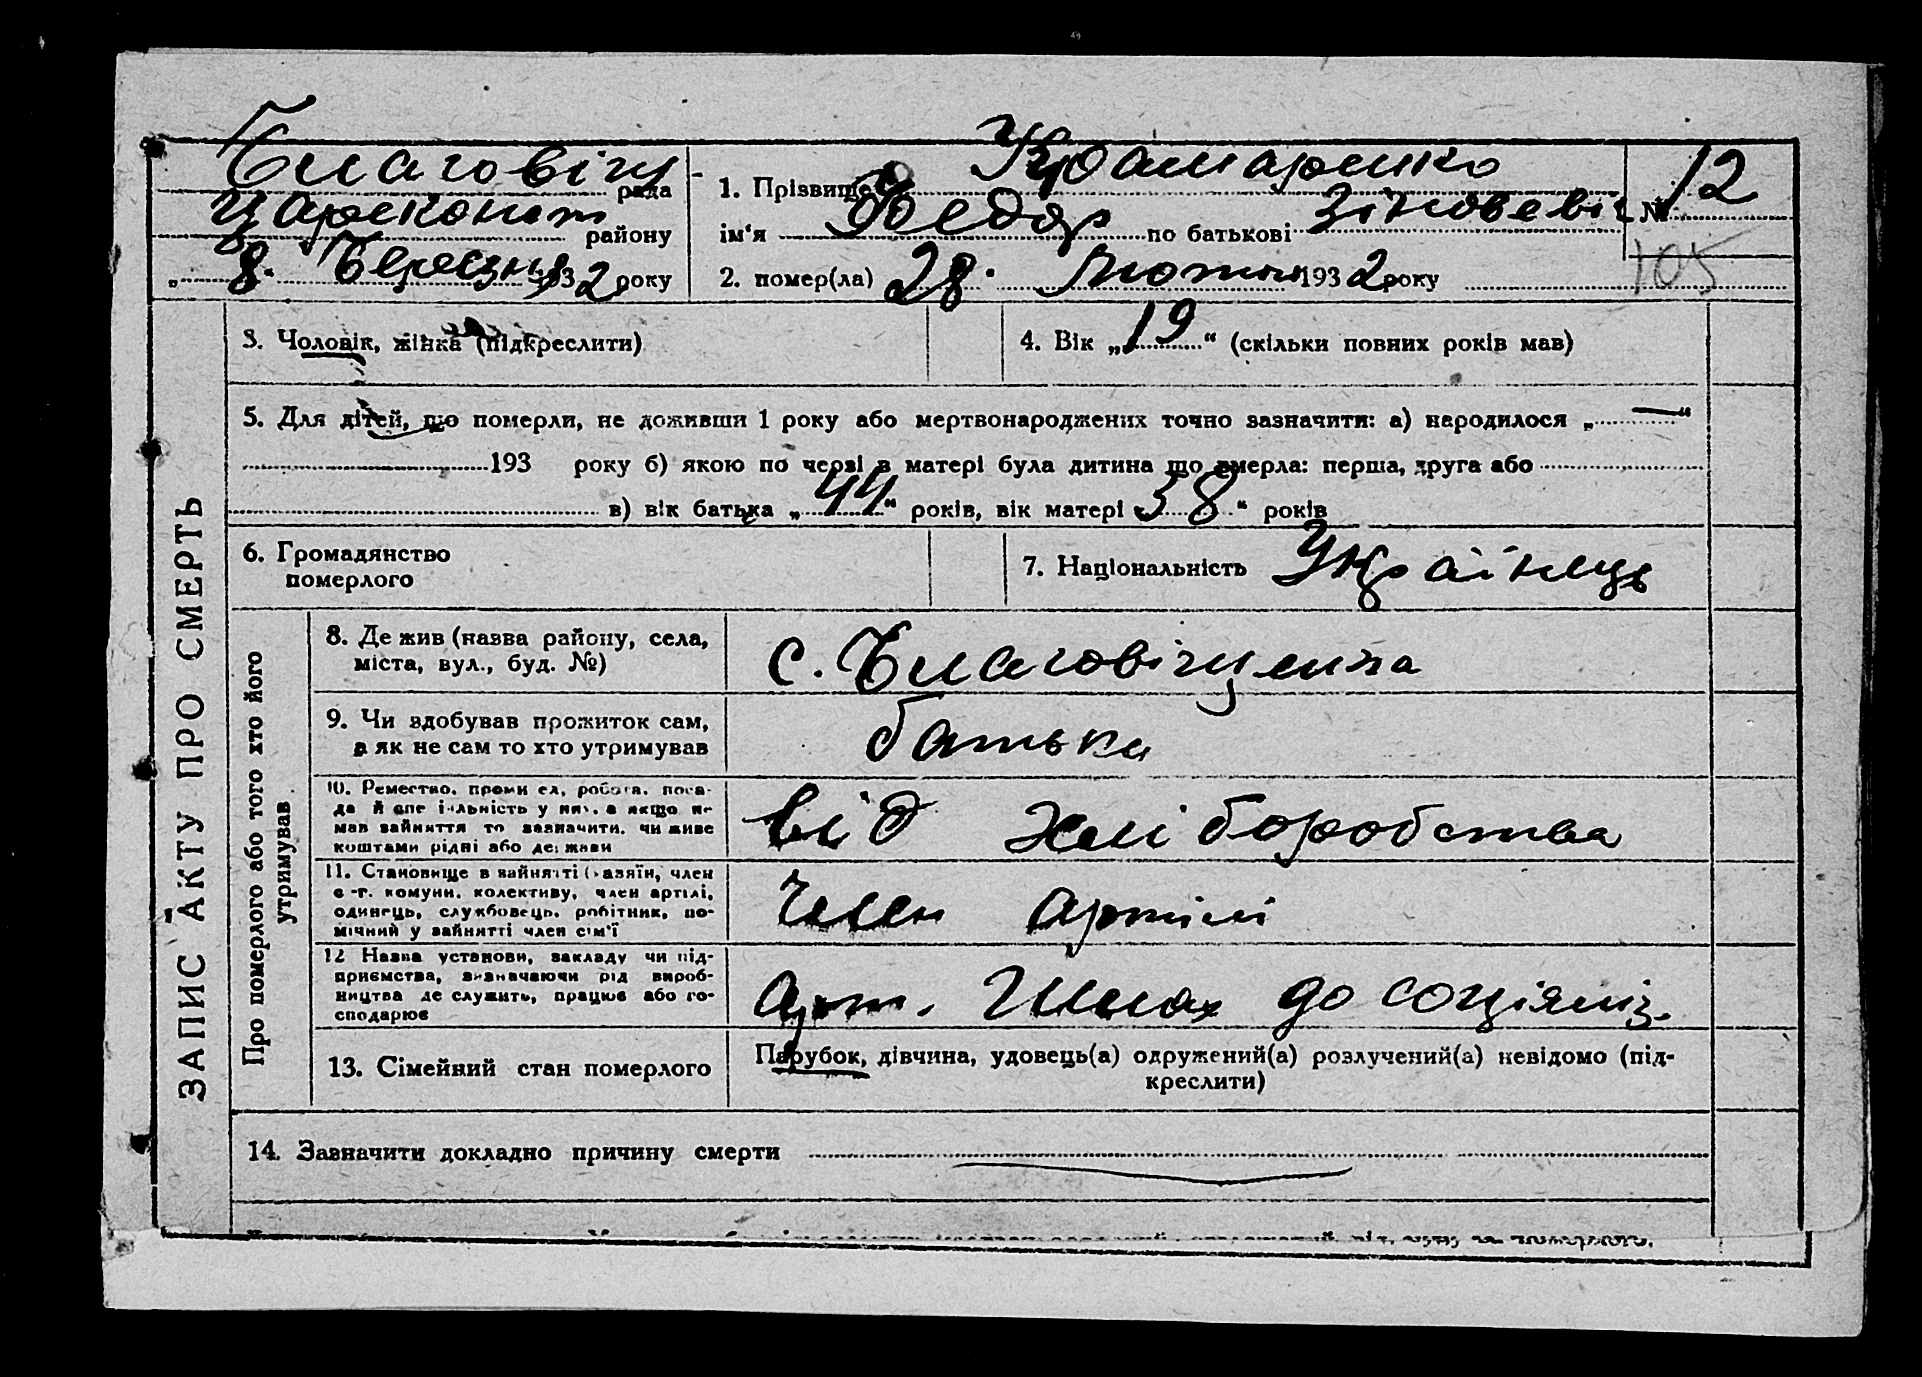 Благовіщ- рада
Царекопст району
„ 8. Березня 1932 року
1. Прізвище Крамаренко
ім‘я Федор по батькові Зіновевіч
№ 12
105
2. помер(ла) 28. Лютня 1932 року
3. Чоловік, жінка (підкреслити)
4. Вік „19“ (скільки повних років мав)
5. Для дітей, що померли, не доживши 1 року або мертвонароджених точно зазначити: а) народилося „ — “
193 року б) якою по черзі в матері була дитина що вмерла: перша, друга або
в) вік батька „44“ років, вік матері 38“ років
6. Громадянство
померлого
7. Національність Українець
ЗАПИС АКТУ ПРО СМЕРТЬ
Про померлого або того хто його
утримував
8. Де жив (назва району, села,
міста, вул., буд. №)
с. Благовіщенка
9. Чи здобував прожиток сам,
а як не сам то хто утримував
батька
10. Ремество, промисел, робота, поса-
да й спеціяльність у них, а якщо не
мав зайняття то зазначити, чи живе
коштами рідні або держави
від хліборобства
11. Становище в зайнятті (хазяїн, член
с-г. комуни, колективу, член артілі,
одинець, службовець, робітник, по-
мічний у зайнятті член сім'ї
член артілі
12 Назва установи, закладу чи під-
приємства, визначаючи рід вироб-
ництва де служить, працює або го-
сподарює
Арт. Шлях до соціяліз.
13. Сімейний стан померлого
Парубок, дівчина, удовець(а) одружений(а) розлучений(а) невідомо (під-
креслити)
14. Зазначити докладно причину смерти